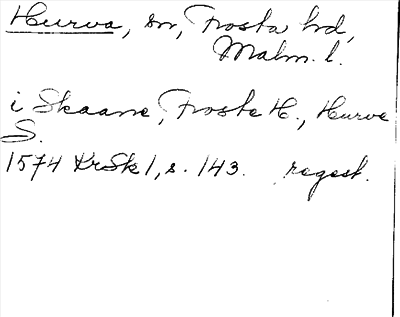 Hurva, sn, Frosta hd,
Malm. l.
i Skaane, Froste H., Hurve
S.
1574 KrSk 1, s. 143. regest.